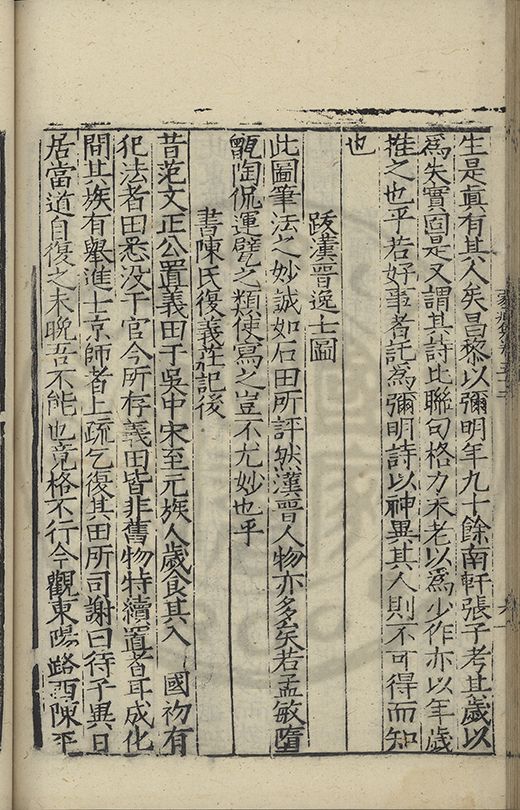 生是真有其人矣昌黎以彌明年九十餘南軒張子考其歲以
爲失實固是又謂其詩比聯句格力未老以爲少作亦以年歲
推之也乎若好事者託爲彌明詩以神異其人則不可得而知
也
跋漢晉逸士圖
此圖筆法之妙誠如石田所評然漢晉人物亦多矣若孟敏墮
甑陶侃運甓之類使寫之豈不尤妙也乎
書陳氏復義莊記後
昔范文正公置義田于吳中宋至元族人歲食其入 國初有
犯法者田悉没于官今所存義田皆非舊物特續置者耳成化
間其族有舉進士京師者上疏乞復其田所司謝曰待子異日
居當道自復之未晚吾不能也竟格不行今觀東陽路西陳平